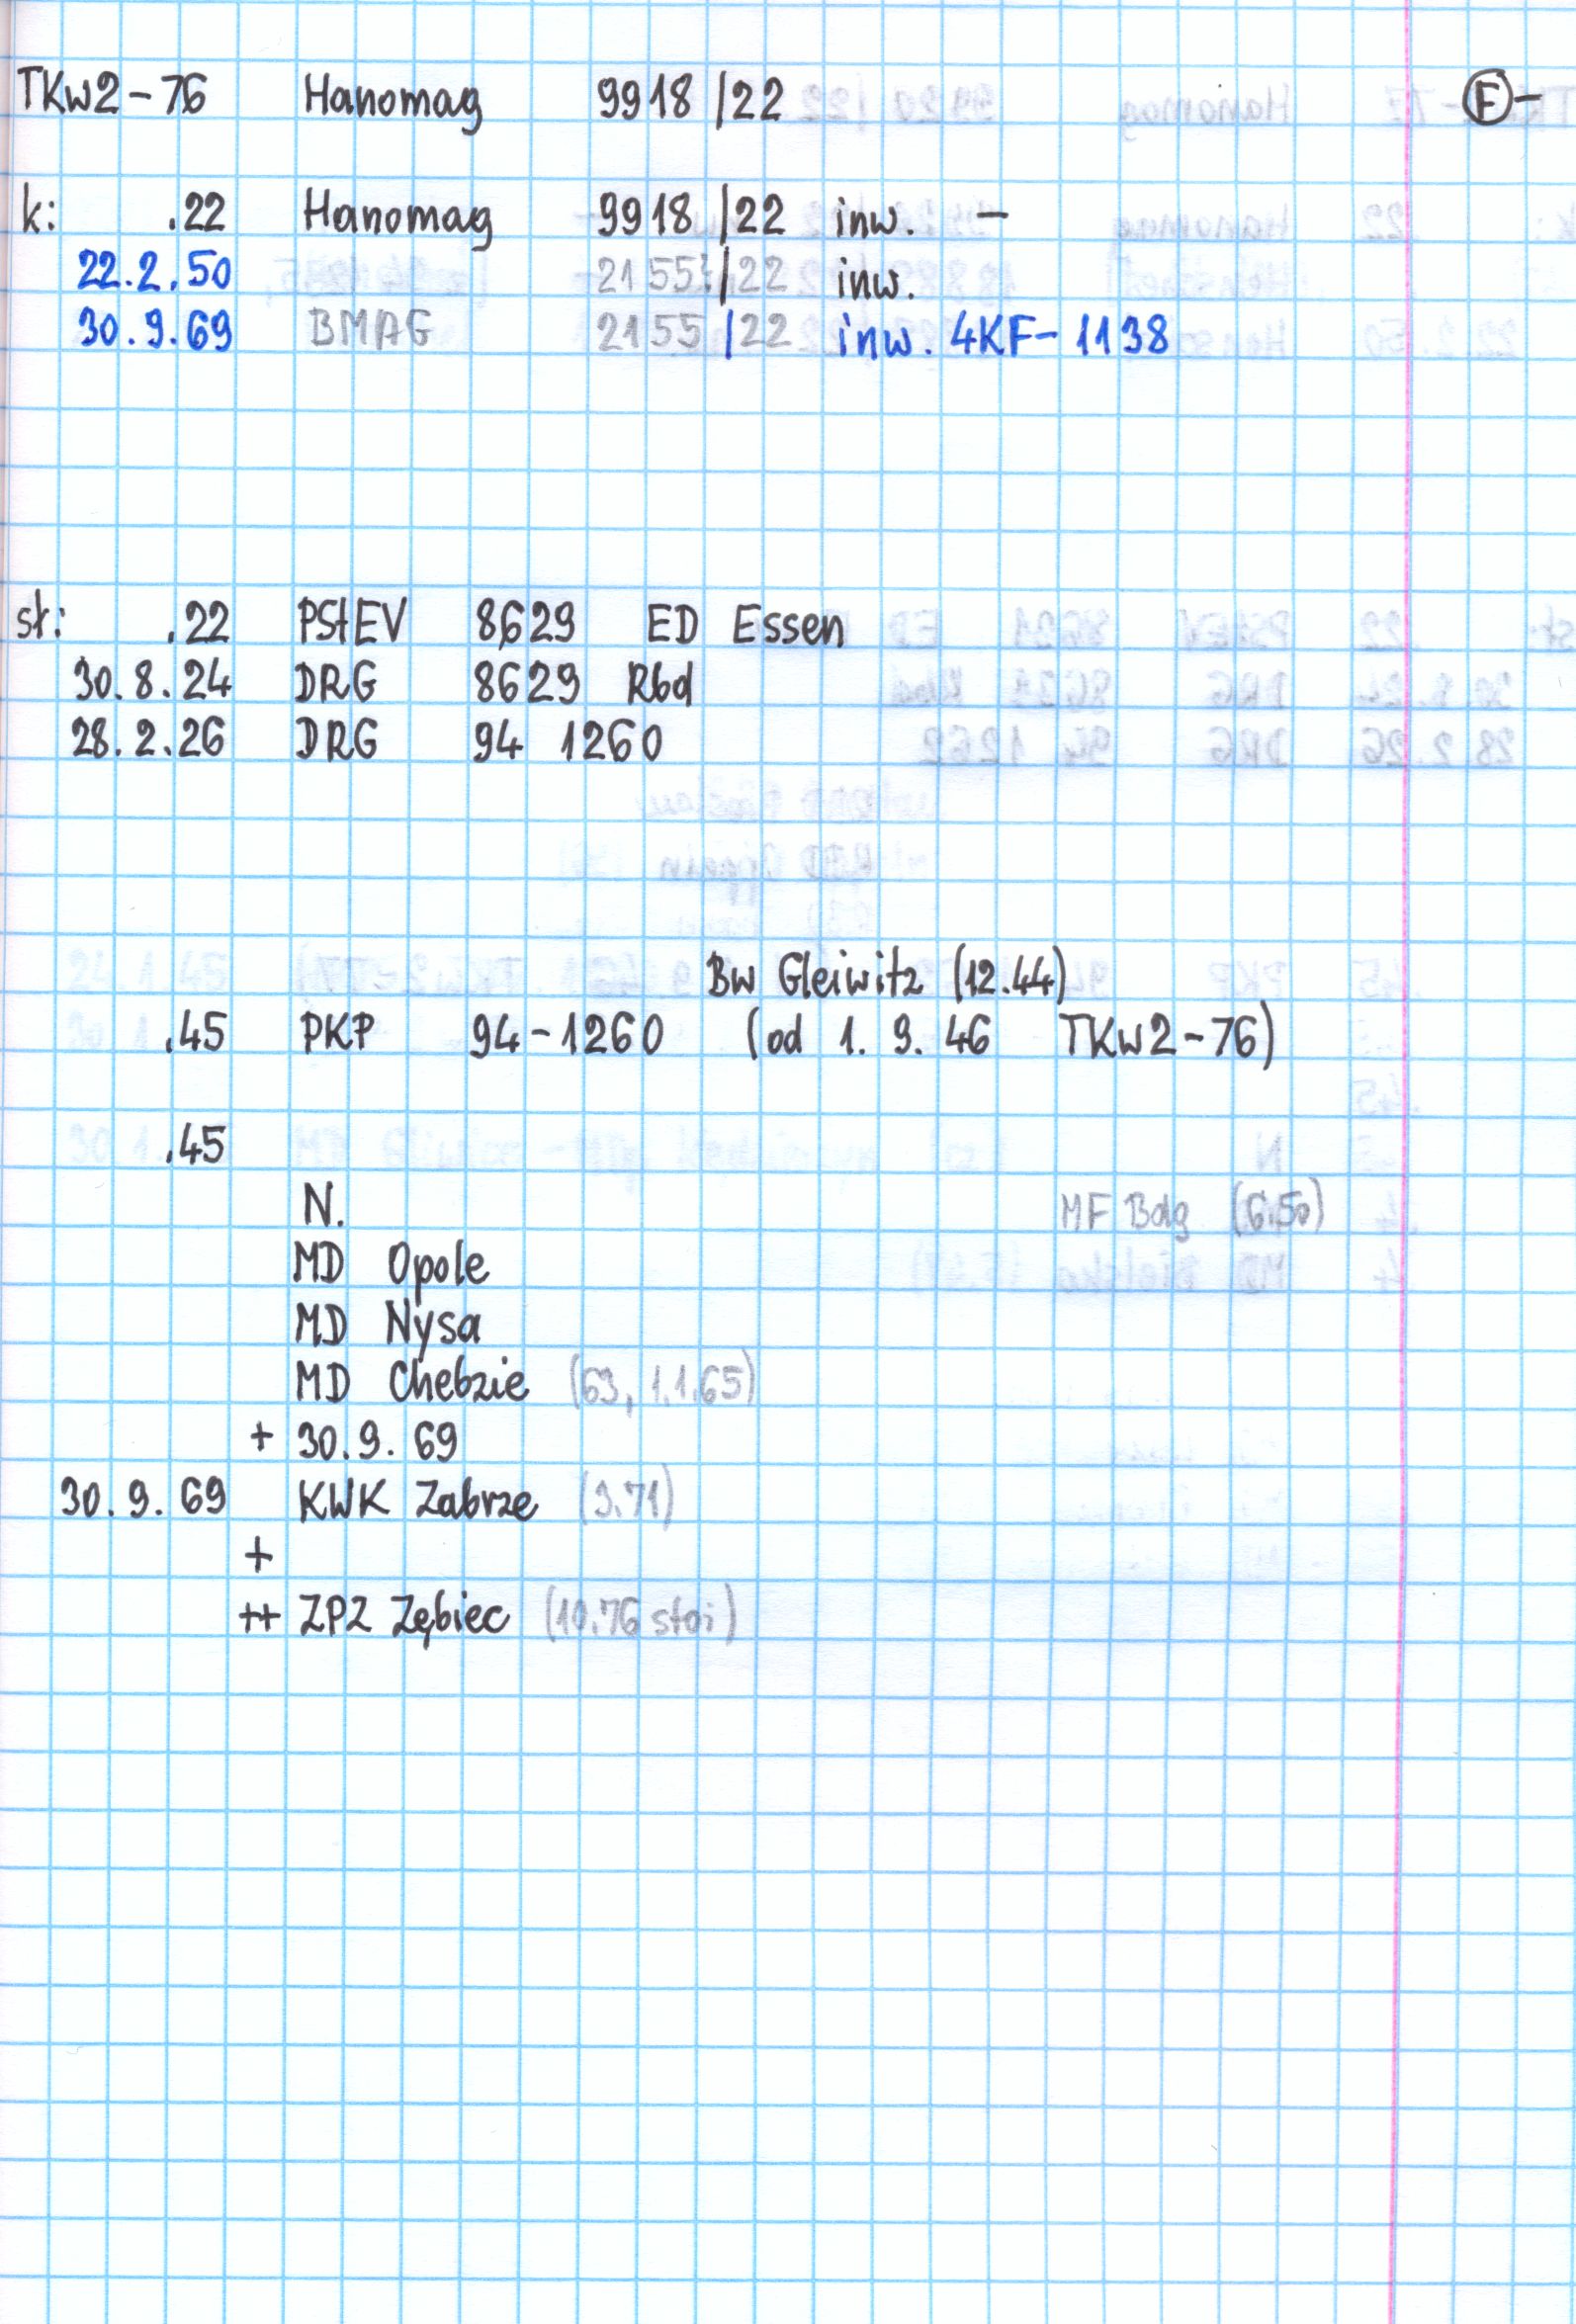 TKw2-76 Hanomag 9918/22 F-
k: .22 Hanomag 9918/22 inw. -
22.2.50 2155?/22 inw.
30.9.69 BMAG 2155/22 inw. 4KF-1138
st: .22 PStEV 8629 ED Essen
30.8.24 DRG 8629 Rbd
28.2.26 DRG 94 1260
Bw Gleiwitz (12.44)
.45 PKP 94-1260 (od 1.9.46 TKw2-76)
.45
N. MF Bdg (6.50)
MD Opole
MD Nysa
MD Chebzie (63, 1.1.65)
+ 30.9.69
30.9.69 KWK Zabrze (3.71)
+
++ ZPZ Zębiec (10.76 stoi)